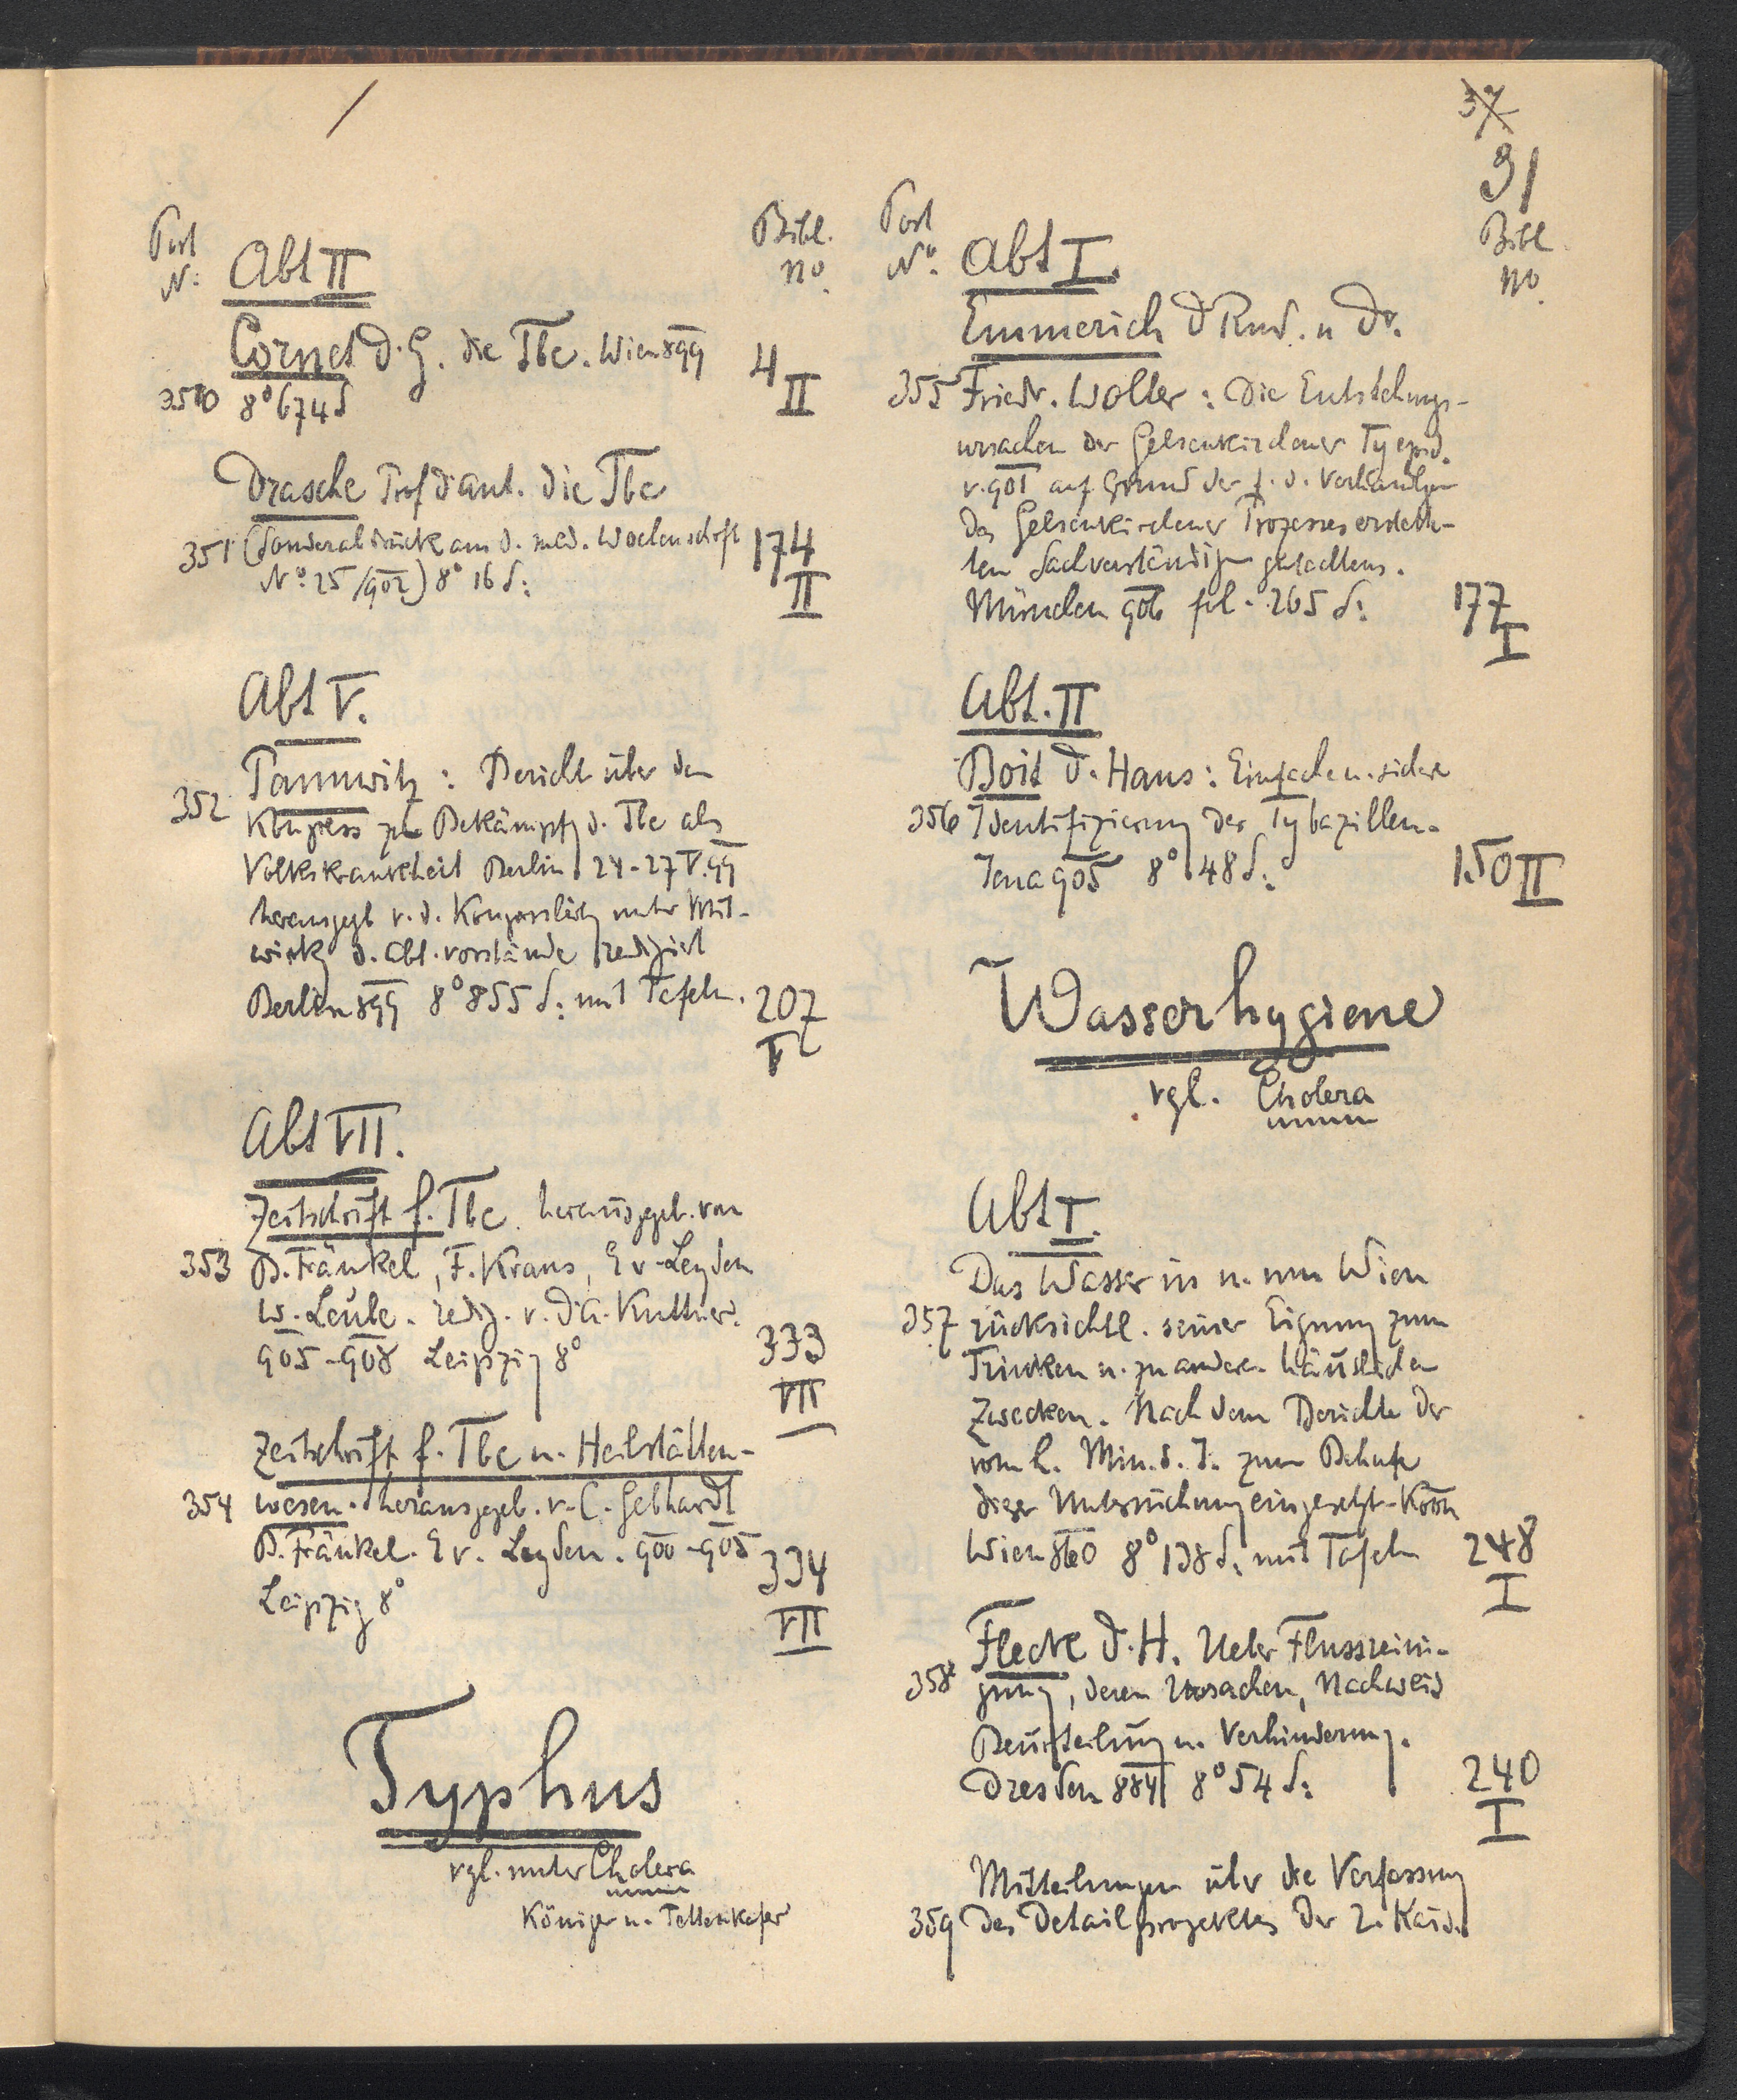 37
91
Post
No.
Abt II
Bibl.
no.
Cornet D. G. die Tbc. Wien 899
350 8° 674 S
4
II
Drasche Prof D Ant. Die Tbc
351 (Sonderabdrück aus d. med. Wochenschrft
No. 25/902) 8° 16 S:
174
II
Abt V.
Pannwitz: Bericht über den
352
Kongress zur Bekämpfg d. Tbc als
Volkskrankheit Berlin 24-27 V.99
herausgegb v. d. Kongressleitg unter Mit-
wirkg d. Abt. vorstände redigiert
Berlin 899 8° 855 S: mit Tafeln.
207
V
Abt VII.
Zeitschrift f. Tbc. herausgegeb. von
353 B. Fränkel, F. Kraus, E v. Leyden
W. Leube. redig. v. D A. Kuttner.
905-908 Leipzig 8°
333
VII
Zeitschrift f. Tbc u. Heilstätten-
354 wesen. herausgegeb. v. C. Gebhardt
B. Fränkel. E v. Leyden. 900-905
Leipzig 8°
334
VII
Typhus
vgl. unter Cholera
Königer u. Pettenkofer
Post
No.
Abt I.
Bibl.
no.
Emmerich D Rud. u Dr.
355 Friedr. Wolter: Die Entstehungs-
ursachen der Gelsenkirchener Ty epid.
v. 901 auf Grund der f. d. Verhandlgen
des Gelsenkirchener Prozesses erstatte-
ten Sachverständigen gutachtens.
München 906 fol. 265 S:
177
I
Abt. II
Boit D. Hans: Einfache u. sichere
356 Identifizierung des Ty bazillen.
Jena 905 8° 48 S:
150 II
Wasserhygiene
vgl. Cholera
Abt I.
Das Wasser in u. um Wien
357 rücksichtl. seiner Eignung zum
Trinken u. zu andern häuslichen
Zwecken. Nach dem Berichte der
vom h. Min. d. I. zum Behufe
dieser Untersuchung eingesetzt. Komm
Wien 860 8° 138 S: mit Tafeln
248
I
Fleck D. H. Ueber Flussreini-
358 gung, deren Ursachen, Nachweis
Beurteilung u. Verhinderung.
Dresden 884 8° 54 S:
240
I
Mitteilungen über die Verfassung
359 des Detailprojektes der 2. Kais.